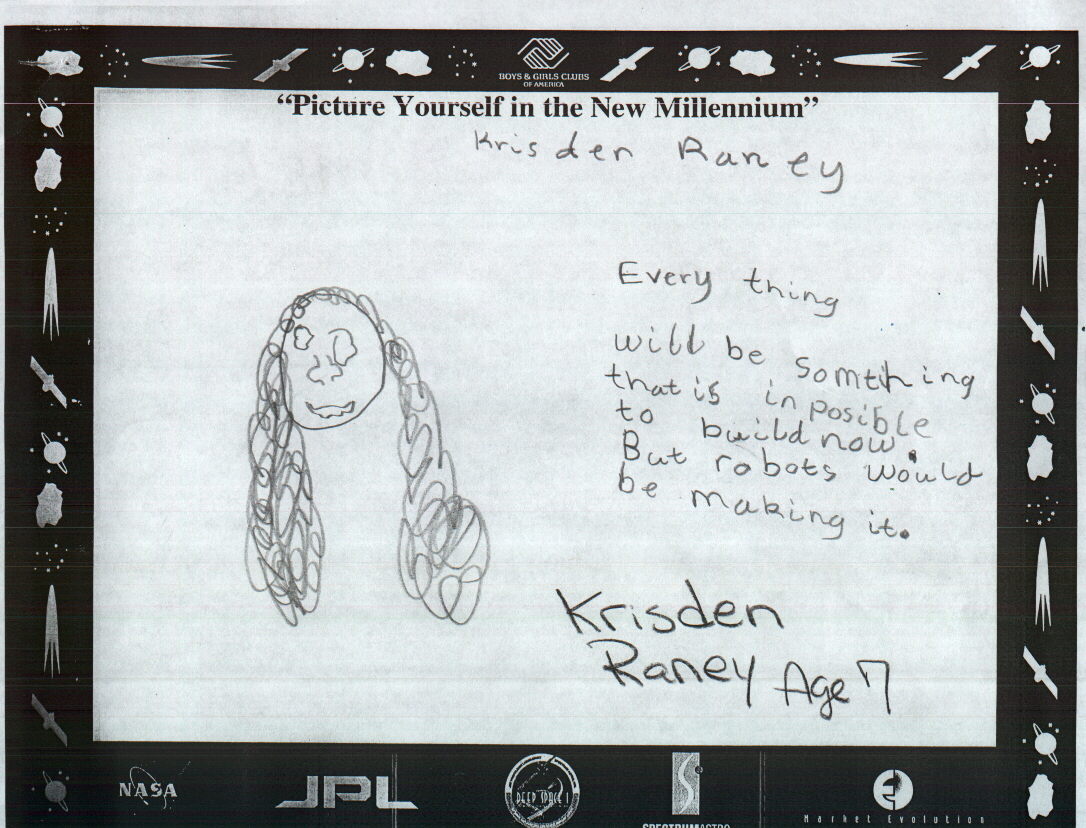 BOYS & GIRLS CLUBS
OF AMERICA
“Picture Yourself in the New Millennium”
Krisden Raney
Every thing
will be somtthing
that is inposible
to build now.
But robots would
be making it.
Krisden
Raney Age 7
NASA
JPL
DEEP SPACE 1
SPECTRUMASTRO
Market Evolution